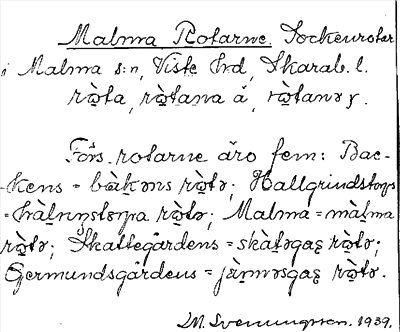 Malma Rotarne. Sockenrotar
i Malma s:n, Viste hrd, Skarab. l.
rò̱ta, rò̱tana å, rò̱tanəɤ.
Förs. rotarne äro fem: Bac-
kens = bàk̠əns rò̱tə; Hallgrindstorps
= hàl̠nŋstɔrpa rò̱tə; Malma = màl̠ma
rò̱tə; Skattegårdens = skàt̠əgaȩ rò̱tə;
Germundsgårdens = jàr̠məsgaȩ rò̱tə.
M. Svenungsson. 1939.